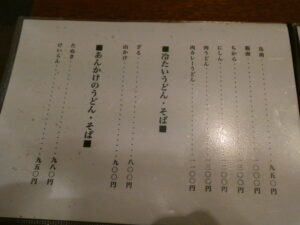 鳥南 ・・・ 九五〇円
鴨南 ・・・ 一一〇〇円
ちから ・・・ 一〇〇〇円
にしん ・・・ 一三〇〇円
肉うどん ・・・ 一二〇〇円
肉カレーうどん ・・・ 一一〇〇円
■冷たいうどん・そば■
ざる ・・・ 八〇〇円
山かけ ・・・ 九〇〇円
■あんかけのうどん・そば■
たぬき ・・・ 九八〇円
けいらん ・・・ 九五〇円